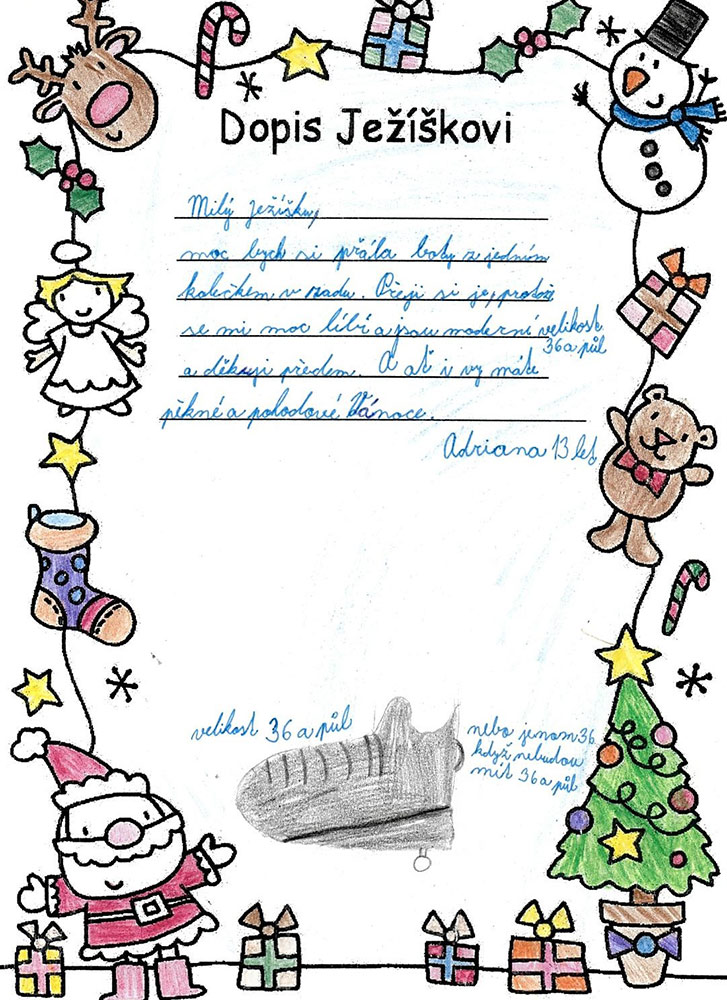 Dopis Ježíškovi
Milý Ježíšku,
moc bych si přála boty z jedním
kolečkem v zadu. Přeji si je, protože
se mi moc líbí a jsou moderní velikost
36 a půl
a děkuji předem. A ať i vy máte
pěkné a pohodové Vánoce.
Adriana 13 let
velikost 36 a půl
nebo jenom 36
když nebudou
mít 36 a půl